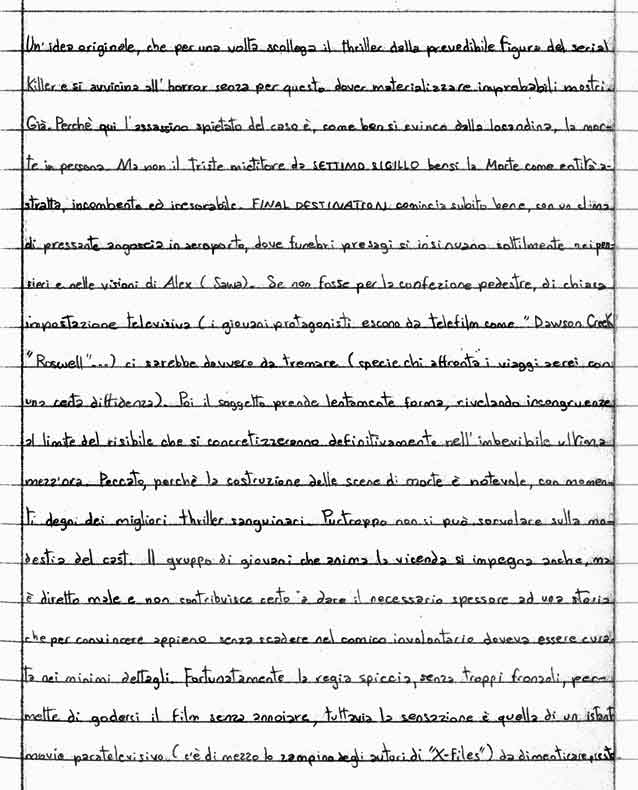 Un'idea originale, che per una volta scollega il thriller dalla prevedibile figura del serial
Killer e si avvicina all'horror senza per questo dover materializzare improbabili mostri.
Già. Perchè qui l'assassino spietato del caso è, come ben si evince dalla locandina, la mor-
te in persona. Ma non il triste mietitore da SETTIMO SIGILLO bensì la Morte come entità a-
stratta, incombente ed inesorabile. FINAL DESTINATION comincia subito bene, con un clima
di pressante angoscia in aeroporto, dove funebri presagi si insinuano sottilmente nei pen-
sieri e nelle visioni di Alex (Sawa). Se non fosse per la confezione pedestre, di chiara
impostazione televisiva (i giovani protagonisti escono da telefilm come "Dawson Creek"
"Roswell"...) ci sarebbe davvero da tremare (specie chi affronta i viaggi aerei con
una certa diffidenza). Poi il soggetto prende lentamente forma, rivelando incongruenze
al limite del risibile che si concretizzeranno definitivamente nell'imbevibile ultima
mezz'ora. Peccato, perchè la costruzione delle scene di morte è notevole, con momen-
ti degni dei migliori thriller sanguinari. Purtroppo non si può sorvolare sulla mo-
destia del cast. Il gruppo di giovani che anima la vicenda si impegna anche, ma
è diretto male e non contribuisce certo a dare il necessario spessore ad una storia
che per convincere appieno senza scadere nel comico involontario doveva essere cura-
ta nei minimi dettagli. Fortunatamente la regia spiccia, senza troppi fronzoli, per-
mette di goderci il film senza annoiare, tuttavia la sensazione è quella di un istant
movie paratelevisivo (c'è di mezzo lo zampino degli autori di "X-Files") da dimenticare presto.